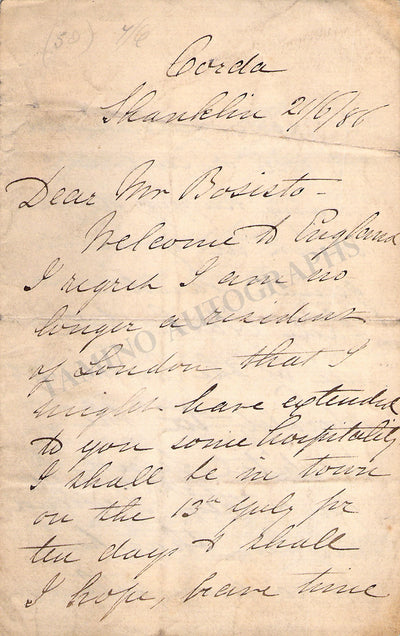 (50) 7/6
Corda
Shanklin 21/6/86
Dear Mr Bosisto -
Welcome to England
I regret I am no
longer a resident
of London that I
might have extended
to you some hospitality
I shall be in town
on the 13th July for
ten days & shall
I hope, have time
TAMINO AUTOGRAPHS